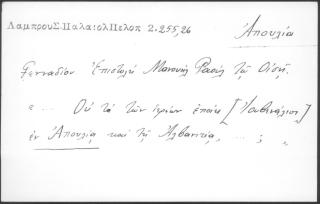 ΛαμπρουΣ.Παλα:ολΠελοπ 2.255,26
Ἀπουλία
Γενναδίου Ἐπιστολὴ Μανουὴλ Ραοὺλ τῷ Οἰσῇ.
"... Οὐ τὰ τῶν ἱερέων ἐποίει [Ἰουβενάλιος]
ἐν Ἀπουλίᾳ καὶ τῇ Ἀλβανιτίᾳ, ... ; „